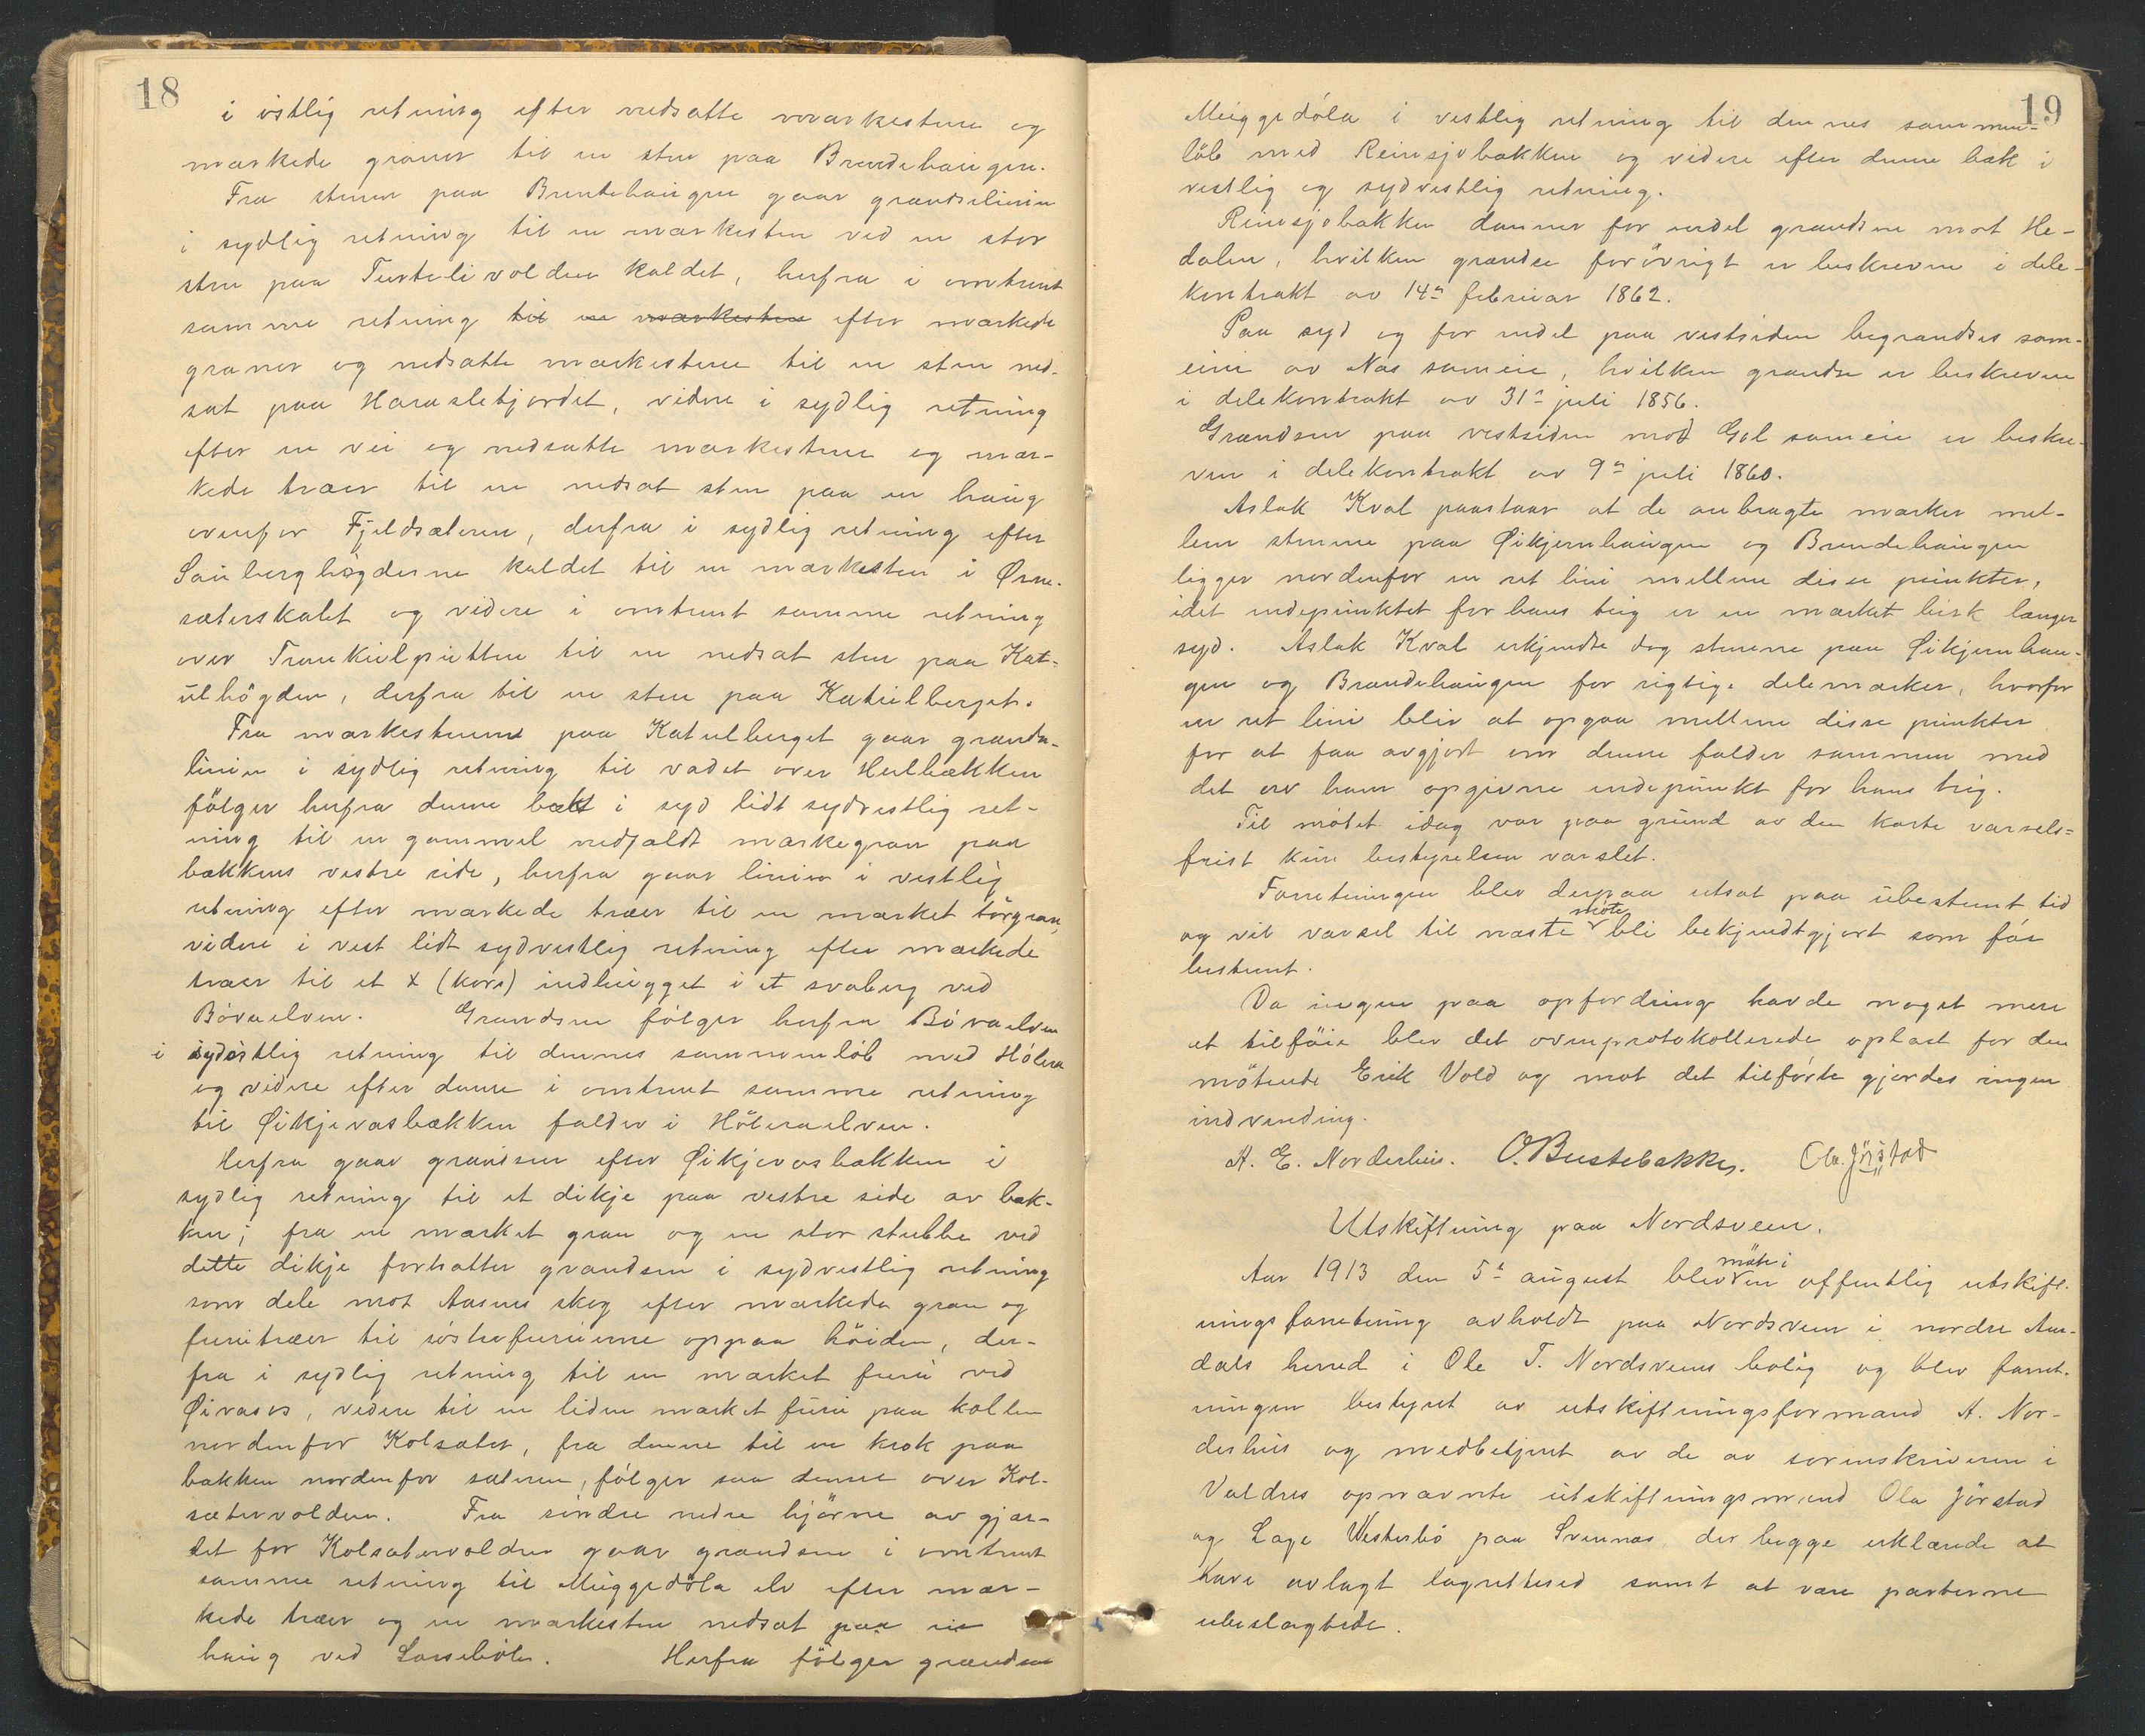 18
i östlig retning efter nedsatte merkestene og
merkede graner til en sten paa Brendehaugen.
Fra stenen paa Brendehaugen gaar grændselinien
i sydlig retning til en merkesten ved en stor
sten paa Turtelivolden kaldet, herfra i omtrent
samme retning til en merkesten efter merkede
graner og nedsatte merkestene til en sten ned-
sat paa Haraslebjordet, videre i sydlig retning
efter en vei og nedsatte merkestene og mer-
kede trær til en nedsat sten paa en haug
ovenfor Fjeldsæteren, derfra i sydlig retning efter
Sauberghögderne kaldet til en merkesten i Ørne-
sæterskalet og videre i omtrent samme retning
over Trunkulputten til en nedsat sten paa Kat-
ulhögden, derfra til en sten paa Katulberget.
Fra merkestenene paa Katulberget gaar grændse-
linien i sydlig retning til vadet over Helbækken
fölger herfra denne bæk i syd lidt sydvestlig ret-
ning til en gammel nedfaldt merkegran paa
bækkens vestre side, herfra gaar linien i vestlig
retning efter merkede trær til en merket törgran,
videre i vest lidt sydvestlig retning efter merkede
trær til et x (kors) indhugget i et svaberg ved
Bövaelven. Grændsen fölger herfra Bövaelven
i sydöstlig retning til dennes sammenlöb med Hölera
og videre efter denne i omtrent samme retning
til Øikjevasbækken falder i Höleraelven.
Herfra gaar grændsen efter Øikjevasbækken i
sydlig retning til et dikje paa vestre side av bæk-
ken; fra en merket gran og en stor stubbe ved
dette dikje fortsætter grændsen i sydvestlig retning
som dele mot Aasnes skog efter merkede gran og
furutrær til östrefuruerne oppaa höiden, der-
fra i sydlig retning til en merket furu ved
Øivasos, videre til en liden merket furu paa kollen
nordenfor Kolsæter, fra denne til en krok paa
bækken nordenfor sæteren, fölger saa denne over Kol-
sætervolden. Fra söndre nedre hjörne av gjær-
det for Kolsætervolden gaar grændsen i omtrent
samme retning til Muggedöla elv efter mer-
kede trær og en merkesten nedsat paa en
haug ved Larsehölen. Herfra fölger grændsen
19
Muggedöla i vestlig retning til dennes sammen-
löb med Reinsjöbækken og videre efter denne bæk i
vestlig og sydvestlig retning.
Reinsjöbækken danner for endel grændsen mot He-
dalen, hvilken grændse forövrigt er beskreven i dele-
kontrakt av 14de februar 1862.
Paa syd og for endel paa vestsiden begrændses sam-
eiet av Nes sameie, hvilken grændse er beskreven
i delekontrakt av 31te juli 1856.
Grændsen paa vestsiden mod Gol sameie er beskre-
ven i delekontrakt av 9de juli 1860.
Aslak Kval paastaar at de anbragte merker mel-
lem stenene paa Øikjernhaugen og Brendehaugen
ligger nordenfor en ret linie mellem disse punkter,
idet endepunktet for hans teig er en merket birk længer
syd. Aslak Kval erkjendte dog stenene paa Øikjernhau-
gen og Brændehaugen for rigtige delemerker, hvorfor
en ret linie blir at opgaa mellem disse punkter
for at faa avgjort om denne falder sammen med
det av ham opgivne endepunkt for hans teig.
Til mötet idag var paa grund av den korte varsels-
frist kun bestyrelsen varslet.
Forretningen blev derpaa utsat paa ubestemt tid
og vil varsel til næste möte bli bekjendtgjort som för
bestemt.
Da ingen paa opfordring havde noget mere
at tilföie blev det ovenprotokollerede oplæst for den
mötende Erik Vold og mot det tilförte gjordes ingen
indvending.
A. E. Norderhus. O. Bustebakke. Ola Jörstad
Utskiftning paa Nordsveen.
Aar 1913 den 5te august blev möte i en offentlig utskift-
ningsforretning avholdt paa Nordsveen i nordre Aur-
dals herred i Ole T. Nordsveens bolig og blev forret-
ningen bestyret av utskiftningsformand A. Nor-
derhus og medbetjent av de av sorenskriveren i
Valdres opnævnte utskiftningsmænd Ola Jörstad
og Lage Westerbö paa Svennes, der begge erklærede at
have avlagt lagretteed samt at være parterne
ubeslægtede.